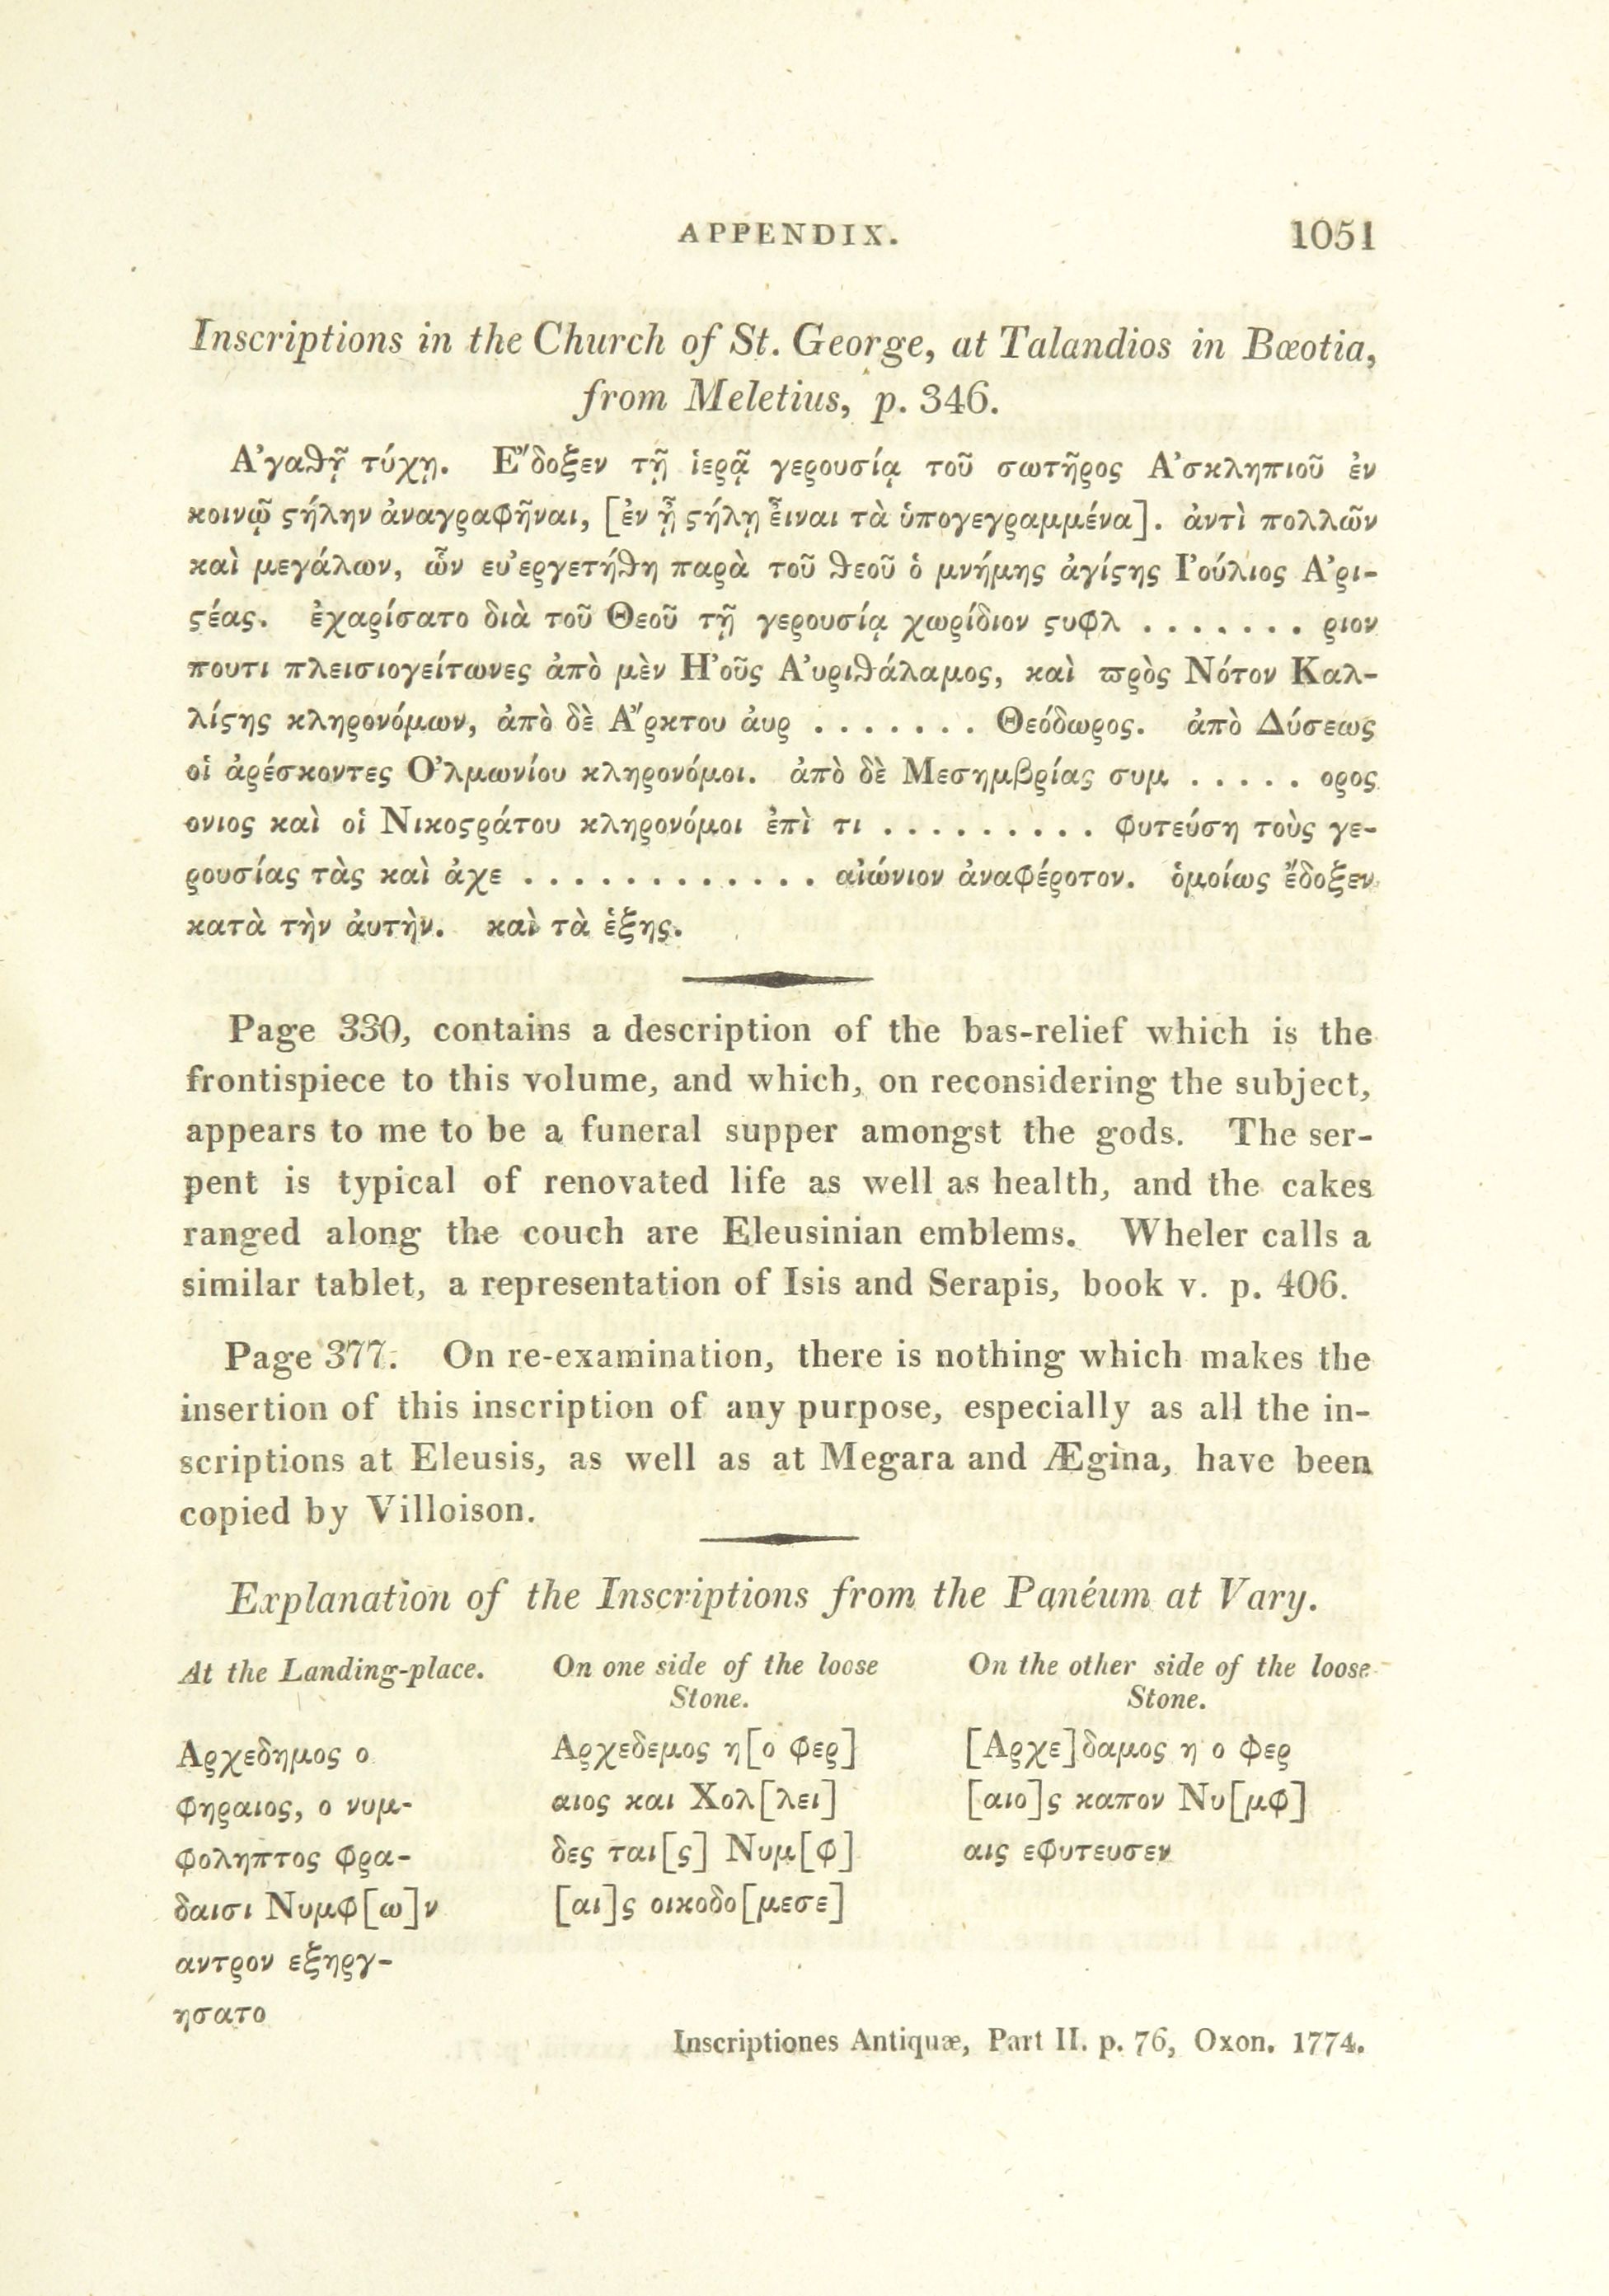 APPENDIX. 1051
Inscriptions in the Church of St. George, at Talandios in Bœotia,
from Meletius, p. 346.
Ἀγαθῇ τύχῃ. Ἔδοξεν τῇ ἱερᾷ γερουσίᾳ τοῦ σωτῆρος Ἀσκληπιοῦ ἐν
κοινῷ ϛήλην ἀναγραφῆναι, [ἐν ᾗ ϛήλῃ ἶειναι τὰ ὑπογεγραμμένα]. ἀντὶ πολλῶν
καὶ μεγάλων, ὧν ευ᾽εργετήθη παρὰ τοῦ θεοῦ ὁ μνήμης ἁγίϛης Ἰούλιος Ἀρι-
ϛέας. ἐχαρίσατο διὰ τοῦ Θεοῦ τῇ γερουσίᾳ χωρίδιον ϛυφλ ....... ριον
πουτι πλεισιογείτωνες ἀπὸ μὲν Ἠοῦς Ἀυριθάλαμος, καὶ ϖρὸς Νότον Καλ-
λίϛης κληρονόμων, ἀπὸ δὲ Ἄρκτου ἀυρ ....... Θεόδωρος. ἀπὸ Δύσεως
οἱ ἀρέσκοντες Ὀλμωνίου κληρονόμοι. ἀπὸ δὲ Μεσημβρίας συμ ..... ορος
ονιος καὶ οἱ Νικοϛράτου κληρονόμοι ἐπὶ τι ......... φυτεύση τοὺς γε-
ρουσίας τὰς καὶ ἀχε ............ αἰώνιον ἀναφέροτον. ὁμοίως ἔδοξεν
κατὰ τὴν ἀυτὴν. καὶ τὰ ἑξης.
Page 330, contains a description of the bas-relief which is the
frontispiece to this volume, and which, on reconsidering the subject,
appears to me to be a funeral supper amongst the gods. The ser-
pent is typical of renovated life as well as health, and the cakes
ranged along the couch are Eleusinian emblems. Wheler calls a
similar tablet, a representation of Isis and Serapis, book v. p. 406.
Page 377. On re-examination, there is nothing which makes the
insertion of this inscription of any purpose, especially as all the in-
scriptions at Eleusis, as well as at Megara and Ægina, have been
copied by Villoison.
Explanation of the Inscriptions from the Panéum at Vary.
At the Landing-place.
Αρχεδημος ο
φηραιος, ο νυμ-
φοληπτος φρα-
δαισι Νυμφ[ω]ν
αντρον εξηργ-
ησατο
On one side of the loose
Stone.
Αρχεδεμος η[ο φερ]
αιος και Χολ[λει]
δες ται[ς] Νυμ[φ]
[αι]ς οικοδο[μεσε]
On the other side of the loose
Stone.
[Αρχε]δαμος η ο φερ
[αιο]ς καπον Νυ[μφ]
αις εφυτευσεν
Inscriptiones Antiquæ, Part II. p. 76, Oxon. 1774.